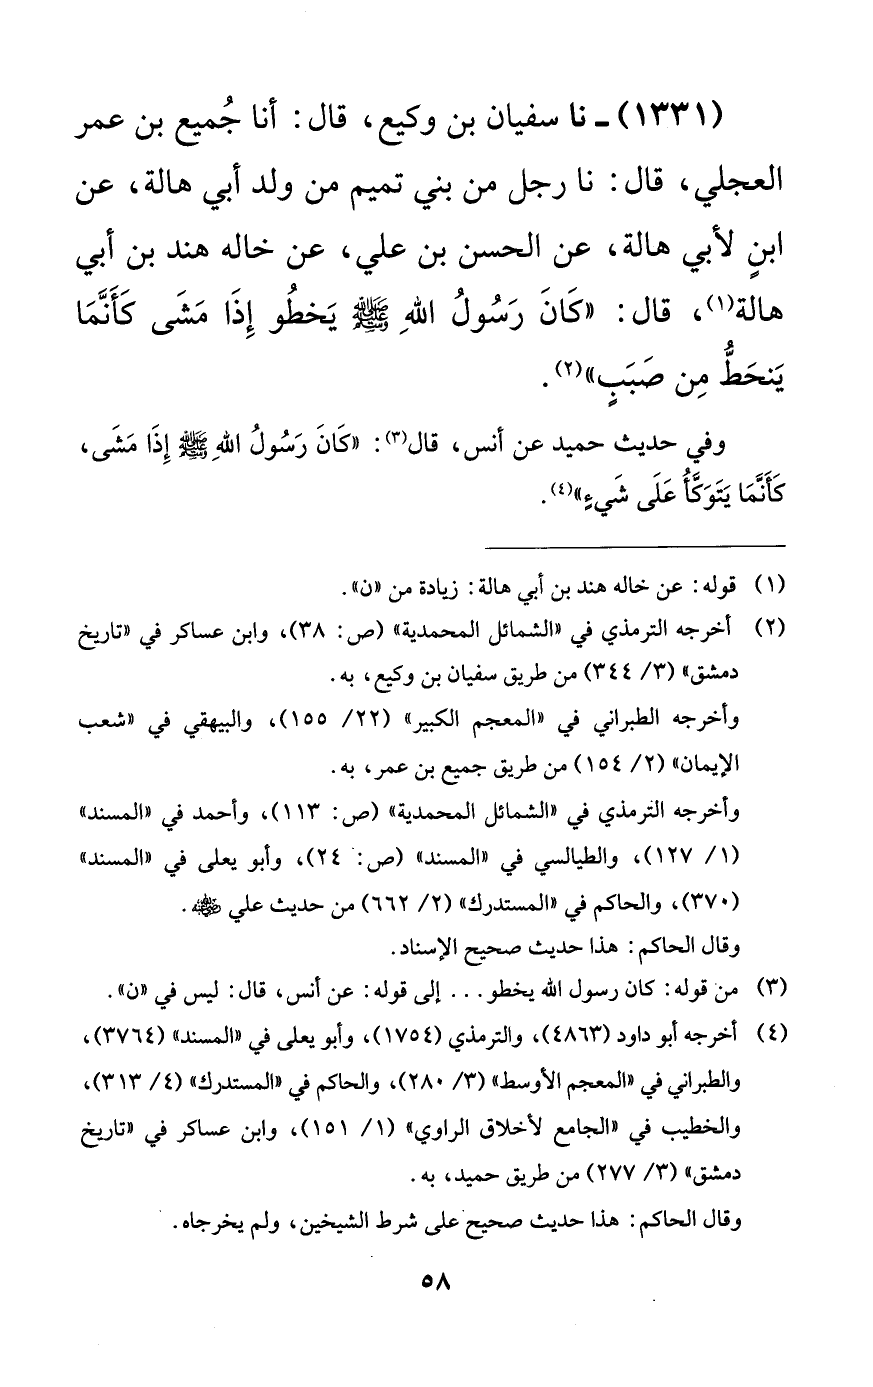 (١٣٣١) ـ نا سفيان بن وكيع، قال: أنا جُميع بن عمر
العجلي، قال: نا رجل من بني تميم من ولد أبي هالة، عن
ابنٍ لأبي هالة، عن الحسن بن علي، عن خاله هند بن أبي
هالة(١)، قال: «كَانَ رَسُولُ اللهِ ﷺ يَخطُو إِذَا مَشَى كَأَنَّمَا
يَنحَطُّ مِن صَبَبٍ»(٢).
وفي حديث حميد عن أنس، قال(٣): «كَانَ رَسُولُ اللهِ ﷺ إِذَا مَشَى،
كَأَنَّمَا يَتَوَكَّأُ عَلَى شَيءٍ»(٤).
(١) قوله: عن خاله هند بن أبي هالة: زيادة من «ن».
(٢) أخرجه الترمذي في «الشمائل المحمدية» (ص: ٣٨)، وابن عساكر في «تاريخ
دمشق» (٣/ ٣٤٤) من طريق سفيان بن وكيع، به.
وأخرجه الطبراني في «المعجم الكبير» (٢٢/ ١٥٥)، والبيهقي في «شعب
الإيمان» (٢/ ١٥٤) من طريق جميع بن عمر، به.
وأخرجه الترمذي في «الشمائل المحمدية» (ص: ١١٣)، وأحمد في «المسند»
(١/ ١٢٧)، والطيالسي في «المسند» (ص: ٢٤)، وأبو يعلى في «المسند»
(٣٧٠)، والحاكم في «المستدرك» (٢/ ٦٦٢) من حديث علي رضي الله عنه.
وقال الحاكم: هذا حديث صحيح الإسناد.
(٣) من قوله: كان رسول الله يخطو... إلى قوله: عن أنس، قال: ليس في «ن».
(٤) أخرجه أبو داود (٤٨٦٣)، والترمذي (١٧٥٤)، وأبو يعلى في «المسند» (٣٧٦٤)،
والطبراني في «المعجم الأوسط» (٣/ ٢٨٠)، والحاكم في «المستدرك» (٤/ ٣١٣)،
والخطيب في «الجامع لأخلاق الراوي» (١/ ١٥١)، وابن عساكر في «تاريخ
دمشق» (٣/ ٢٧٧) من طريق حميد، به.
وقال الحاكم: هذا حديث صحيح على شرط الشيخين، ولم يخرجاه.
٥٨